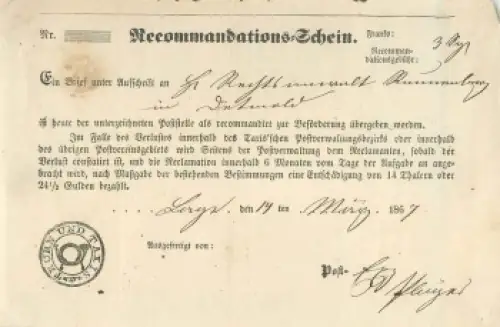 Nr. Recommandations-Schein. Franko: 3 Sgr
Recomman-
dationsgebühr:
Ein Brief unter Aufschrift an H. Rechtsanwalt Runnenberg
in Detmold
ist heute der unterzeichneten Poststelle als recommandirt zur Beförderung übergeben worden.
Im Falle des Verlustes innerhalb des Taxis'schen Postverwaltungsbezirks oder innerhalb
des übrigen Postvereinsgebiets wird Seitens der Postverwaltung dem Reclamanten, sobald der
Verlust constatirt ist, und die Reclamation innerhalb 6 Monaten vom Tage der Aufgabe an ange-
bracht wird, nach Maßgabe der bestehenden Bestimmungen eine Entschädigung von 14 Thalern oder
24½ Gulden bezahlt.
Lemgo, den 14 ten März 1867
Ausgefertigt von:
Post-